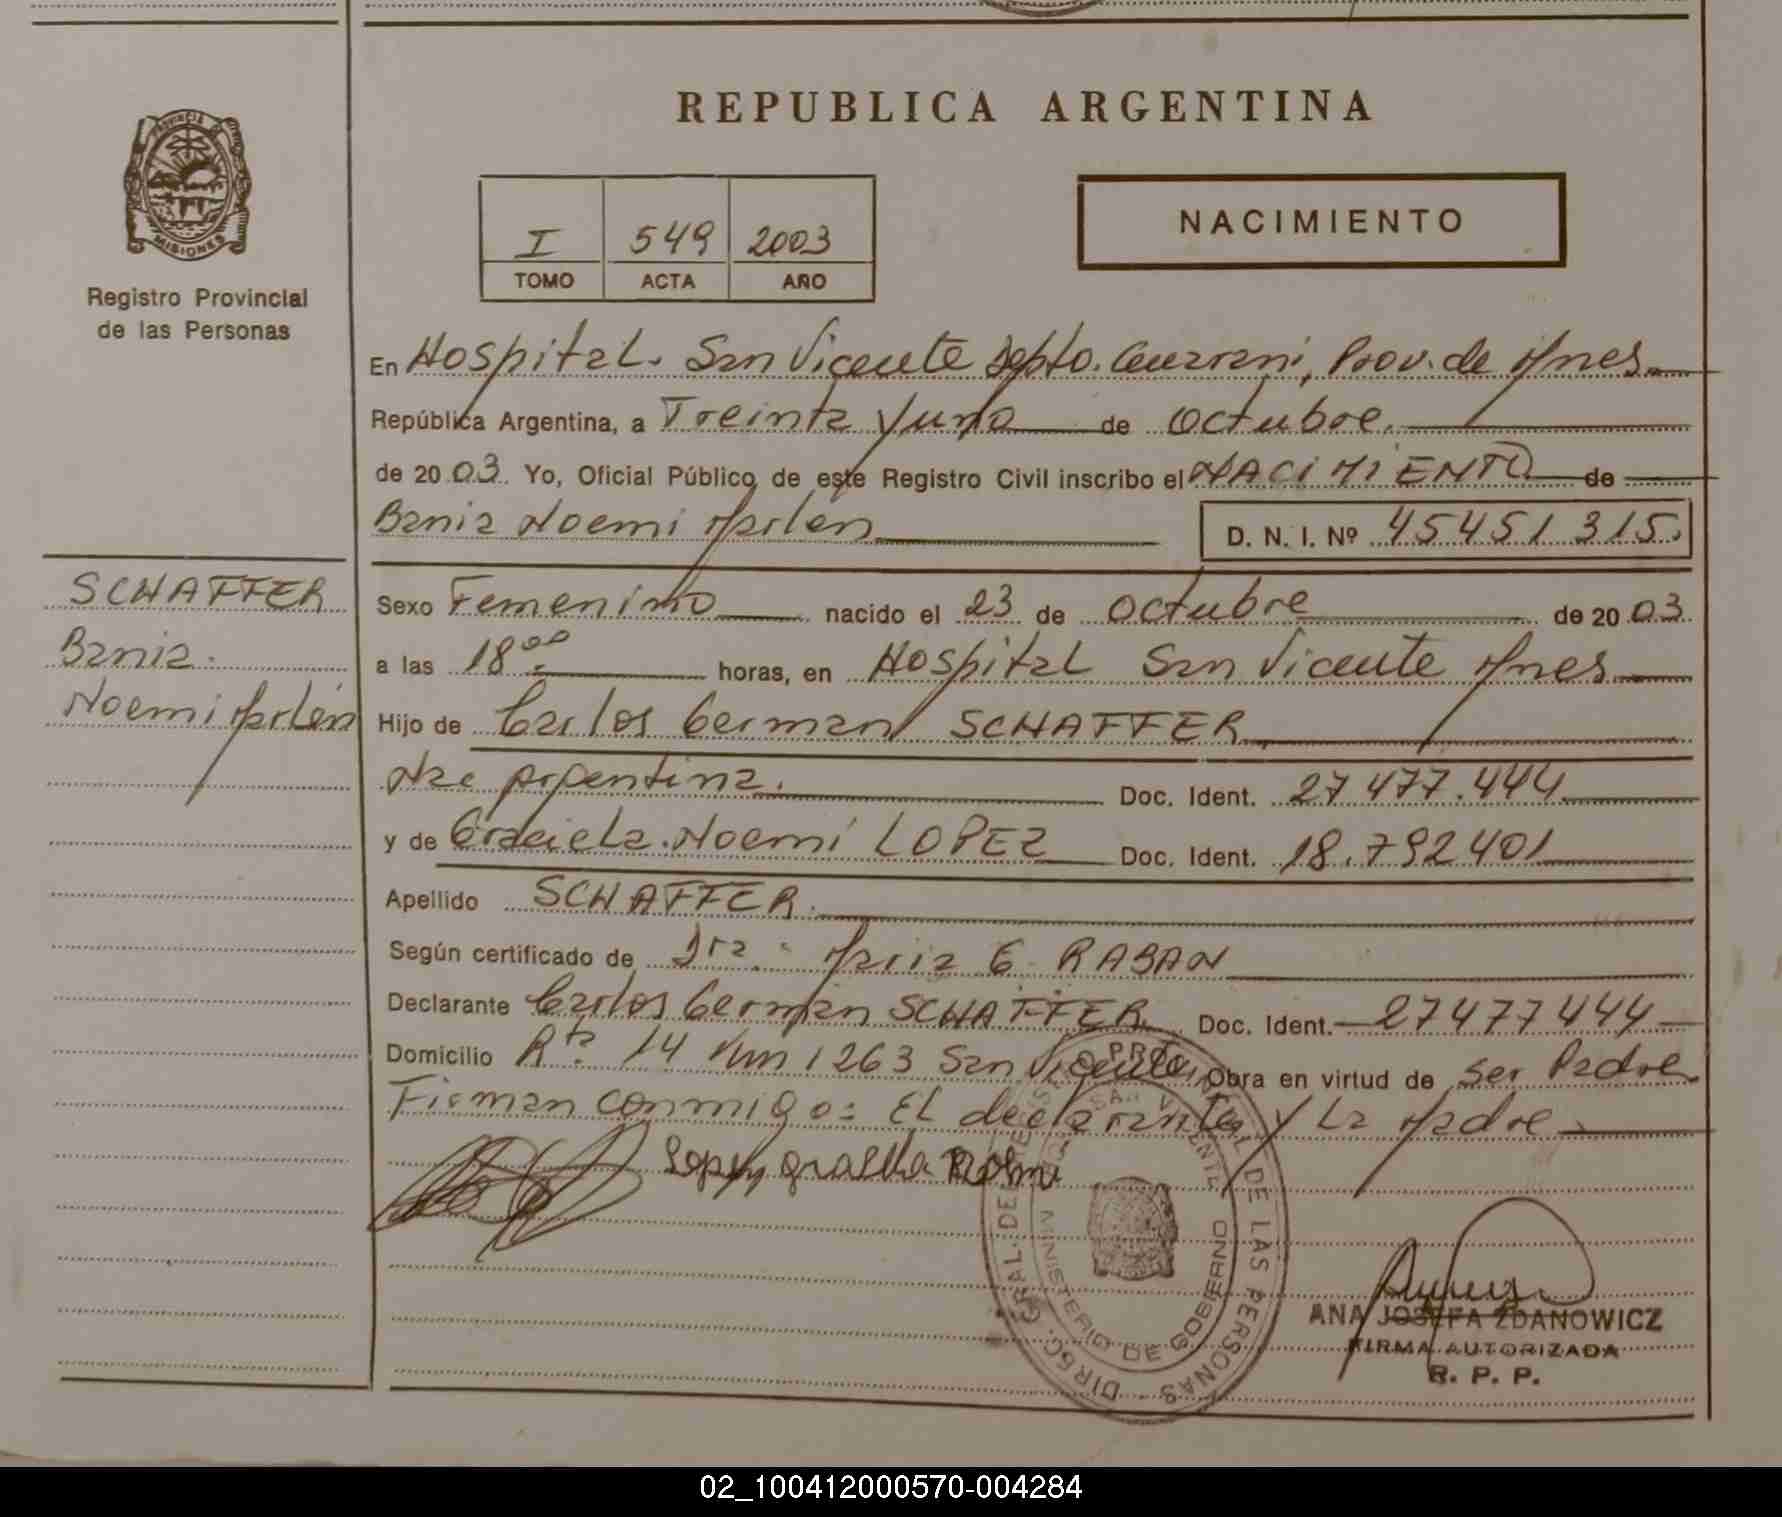 REPUBLICA ARGENTINA
PROVINCIA DE MISIONES
Registro Provincial
de las Personas
I 549 2003
TOMO ACTA AÑO
NACIMIENTO
En Hospital. San Vicente Depto. Guarani, Prov. de Mnes.
República Argentina, a Treinta y uno de Octubre.
de 2003. Yo, Oficial Público de este Registro Civil inscribo el NACIMIENTO de
Bania Noemi Marlén
D. N. I. Nº 45451315.
SCHAFFER
Bania.
Noemi Marlén
Sexo Femenino nacido el 23 de Octubre de 2003
a las 18⁰⁰ horas, en Hospital San Vicente Mnes
Hijo de Carlos German SCHAFFER
Nac Argentina. Doc. Ident. 27 477.444
y de Graciela. Noemí LOPEZ Doc. Ident. 18.792401
Apellido SCHAFFER.
Según certificado de Dra: Maria G RABAN
Declarante Carlos German SCHAFFER Doc. Ident. 27477444
Domicilio Rta. 14 Km 1263 San Vicente. Obra en virtud de ser Padre
Firman conmigo: El declarante y La Madre
Lopez graciela Noemi
DIREC. GRAL. DEL REGISTRO PROVINCIAL DE LAS PERSONAS
SAN VICENTE
MINISTERIO DE GOBIERNO
ANA JOSEFA ZDANOWICZ
FIRMA AUTORIZADA
R. P. P.
02_100412000570-004284